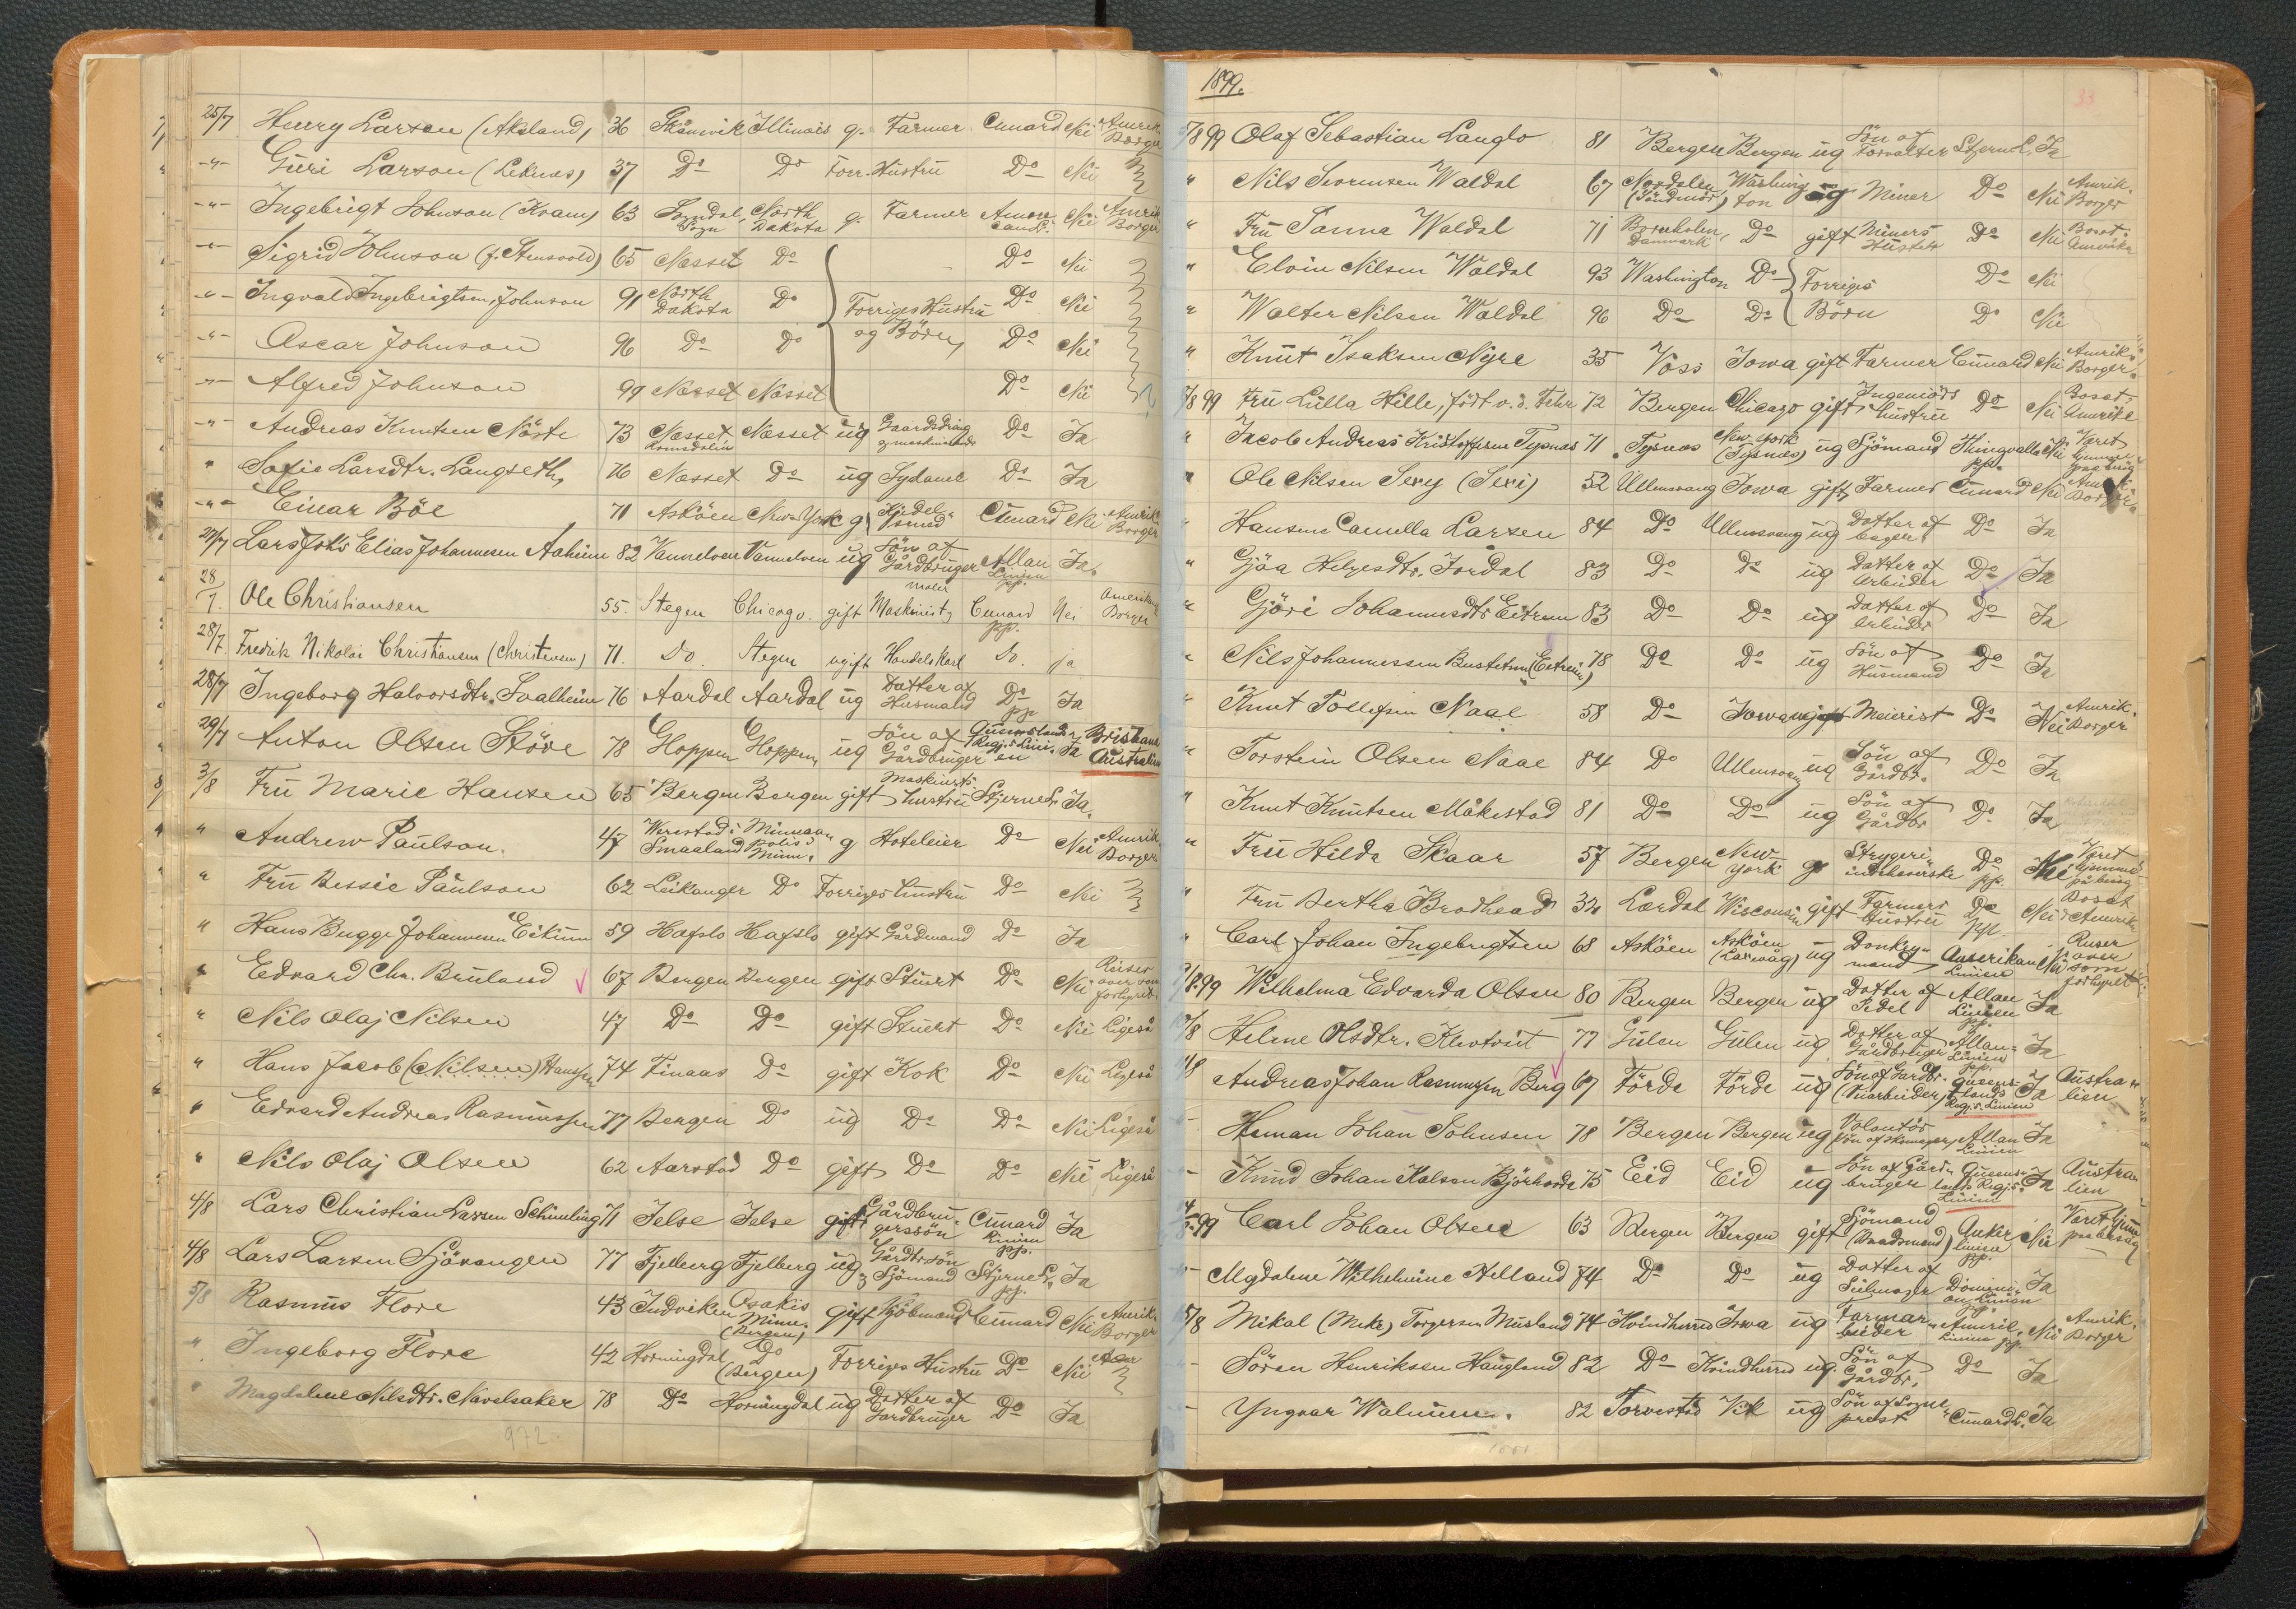 25/7 Henry Larson (Akeland) 36 Illinois g. Farmer Cunard Nei Amrik. Borger
-"- Guri Larson (Leknes) 37 Do Do Forr. Hustru Do Nei
-"- Ingebrigt Johnson (Kvam) 63 Sogndal, Sogn North Dakota g. Farmer Nei Amrik. Borger
-"- Sigrid Johnson (f. Stensvold) 65 Næsset Do Do Nei
-"- Ingvald Ingebrigtsen Johnson 91 North Dakota Do Forriges Hustru og Börn Do Nei
-"- Ascar Johnson 96 Do Do Do Nei
-"- Alfred Johnson 99 Næsset Næsset Do Nei
-"- Andreas Knutsen Nöste 73 Næsset Romsdalen Næsset ug Gaardsdräng Do Ja
" Sofie Larsdtr. Langseth, 76 Næsset Do ug Sydame Do Ja
-"- Einar Böe 71 Asköen New-York g. Kjedelsmed Cunard Nei Amrik. Borger
27/7 Lars Joh's Elias Johannesen Aaheim 82 Vannelven Vannelven ug Sön af Gårdbruger Allan Linien pp. Ja
28/7. Ole Christiansen 55. Stegen Chicago. gift Maskinist, maler Cunard pp. Nei Amerikansk Borger
28/7. Fredrik Nikolai Christiansen (Christensen) 71. Do. Stegen ugift Handelskarl Do. ja
28/7 Ingeborg Halvorsdtr. Svalheim 76 Aardal Aardal ug Datter af Husmand Do pp Ja
29/7 Anton Olsen Störe 78 Hoppen Hoppen, ug Sön af Gårdbruger Queenslands Regj.s Linien Ja Brisbane Australien
3/8 Fru Marie Hansen 65 Bergen Bergen gift Maskinists hustru Stjerne L. Ja.
" Andrew Paulson. 47 Werestad i Smaaland Minneapolis Minn. g Hoteleier Do Nei Amrik. Borger
" Fru Bessie Paulson 62 Leikanger Do Forriges hustru Do Nei
" Hans Bugge Johannesen Eikum 59 Hafslo Hafslo gift Gårdmand Do Ja
" Edvard Chr. Bruland 67 Bergen Bergen gift Stuert Do Nei Reiser over som forhyret.
" Nils Olaj Nilsen 47 Do Do gift Stuert Do Nei Ligeså
" Hans Jacob (Nilsen) Hansen 74 Finaas Do gift Kok Do Nei Ligeså
" Edvard Andreas Rasmussen 77 Bergen Do ug Do Do Nei Ligeså
" Nils Olaj Olsen 62 Aarstad Do gift Do Do Nei Ligeså
4/8 Lars Christian Larsen Schimling 71 Jelse Jelse gift Gårdbrugerssön Cunard Linien pp. Ja
4/8 Lars Larsen Sjövangen 77 Fjelberg Fjelberg ug Gårdbr. sön og Sjömand Stjerne L. pp. Ja
5/8 Rasmus Flore 43 Indviken Osakis Minn. (Bergen) gift Kjöbmand Cunard Nei Amrik. Borger
" Ingeborg Flore 42 Horningdal Do (Bergen) Forriges Hustru Do Nei
" Magdalene Nilsdtr. Navelsaker 78 Do Horningdal ug Datter af Gardbruger Do Ja
972
1899.
33
7/8 99 Olaf Sebastian Langlo 81 Bergen Bergen ug Sön af Forvalter Stjerne L. Ja
" Nils Severinsen Waldal 67 Nordalen (Söndmör) Washington ug Miner Do Nei Amrik. Borger
" Fru Sanna Waldal 71 Bornholm, Danmark Do gift Miners Hustru Do Nei Bosat Amerika
" Elvin Nilsen Waldal 93 Washington Do Forriges Do Nei
" Walter Nilsen Waldal 96 Do Do Börn Do Nei
" Knut Isaksen Nyre 35 Voss Iowa gift Farmer Cunard Nei Amrik. Borger.
7/8 99 Fru Lulla Hille, födt v.d. Fehr 72 Bergen Chicago gift Ingeniörs hustru Do Nei Bosat Amrika
" Jacob Andreas Kristoffersen Tysnes 71 Tysnes New-York (Tysnes) ug Sjömand Thingvalla pp. Nei Været hjemme paa besög
" Ole Nilsen Sexy (Sexi) 52 Ullensvang Iowa gift Farmer Cunard Nei Amrik. Borger
" Hansine Camella Larsen 84 Do Ullensvang ug Datter af Bager Do Ja
" Gjöa Helgesdtr. Jordal 83 Do Do ug Datter af Arbeider Do Ja
" Gjöri Johannesdtr. Eitrem 83 Do Do ug Datter af Arbeider Do Ja
" Nils Johannessen Bustetun (Eitrem) 78 Do Do ug Sön af Husmand Do Ja
" Knut Tollefsen Naae 58 Do Iowa ugift Meierist Do Nei Amrik. Borger
" Torstein Olsen Naae 84 Do Ullensvang ug Sön af Gårdbr. Do Ja
" Knut Knutsen Måkestad 81 Do Do ug Sön af Gårdbr Do Ja
" Fru Hilda Skaar 57 Bergen New York g Strygeri indehaverske Do pp. Nei Været hjemme på besög
" Fru Bertha Brodhead 34 Lærdal Wisconsin gift Farmers Hustru Do pp. Nei Bosat Amrika
" Carl Johan Ingebrigtsen 68 Asköen Asköen ug Donkeymand Amerikan Linien Nei Reiser over som forhyret
9/8.99 Wilhelma Edvarda Olsen 80 Bergen Bergen ug Datter af Pedel Allan Linien pp. Ja
/8 Helene Olsdtr. Klevtvit 77 Gulen Gulen ug Datter af Gårdbruger Allan Linien pp. Ja
11/8 Andreas Johan Rasmussen Berg 67 Förde Förde ug Sön af Gardbr. Queenslands Regj.s Linien Ja Australien
- Herman Johan Johnsen 78 Bergen Bergen ug Volontör Sön af Skomager Allan Linien Ja
- Knud Johan Kalson Björhovde 75 Eid Eid ug Sön af Gårdbruger Queenslands Regj.s Linien Ja Australien
14/8.99 Carl Johan Olsen 63 Bergen Bergen gift Sjömand (Baadsmand) Anker linien pp. Nei Været hjemme paa besög
- Magdalene Wilhelmine Helland 74 Do Do ug Datter af Seilmager Dominion Linien pp. Ja
15/8 Mikal (Mike) Torgersen Musland 74 Kvindherred Iowa ug Farmarbeider Amrik. Linien pp. Nei Amrik. Borger
- Sören Henriksen Haugland 82 Do Kvindherred ug. Sön af Gårdbr. Do Ja
- Yngvar Walnum. 82 Torvestad Vik ug Sön af Sogneprest Cunard L. Ja
1001